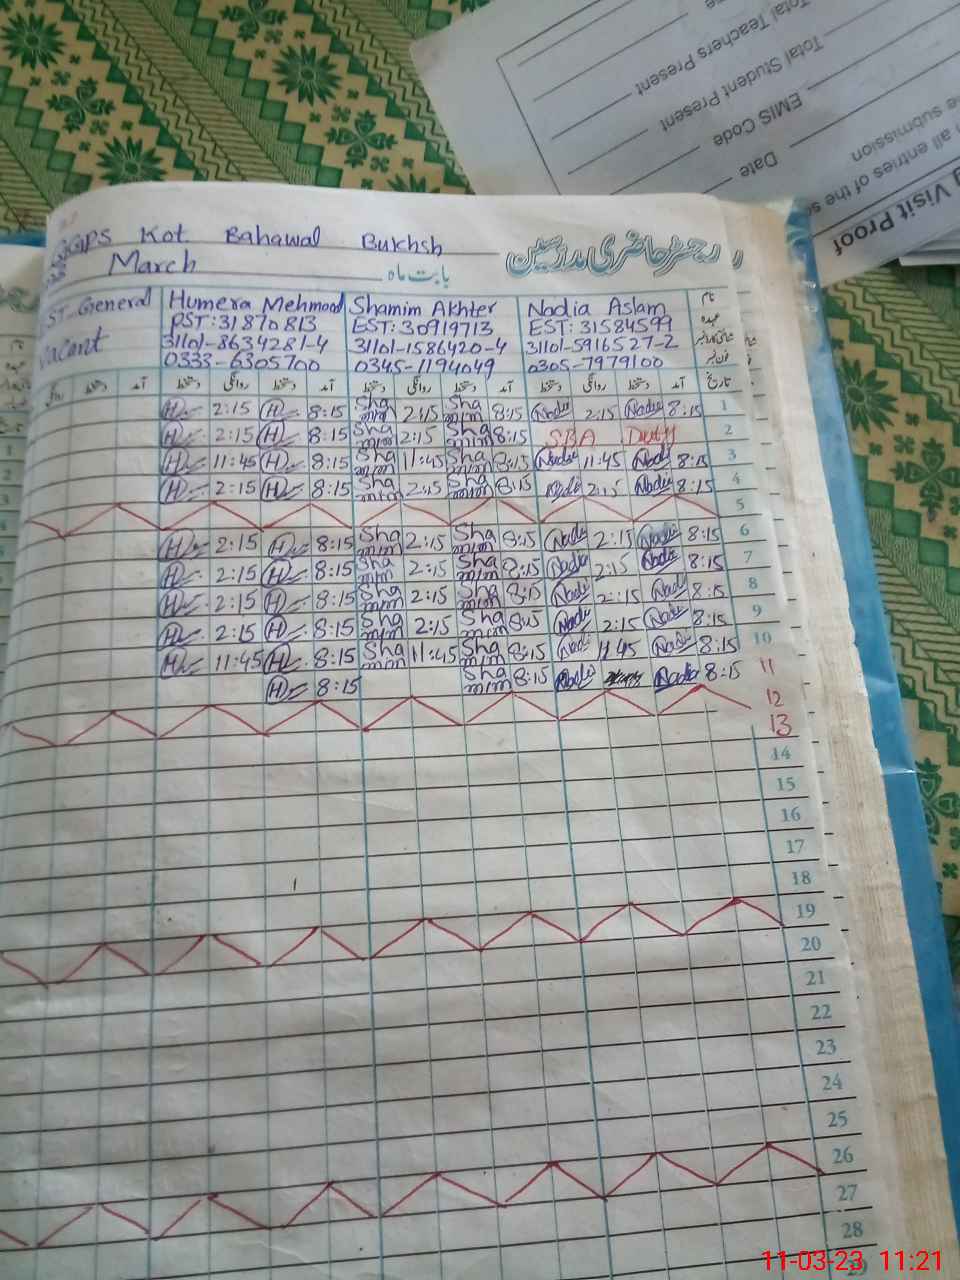 Visit Proof
all entries of the s
e submission
Date
EMIS Code
Total Student Present
Total Teachers Present
GGPS Kot Bahawal Bukhsh
رجسٹر حاضری مدرسین
March
بابت ماہ
ST-General Humera Mehmood Shamim Akhter Nadia Aslam نام
PST: 31870813 EST: 30919713 EST: 31584599 عہدہ
Vacant 31101-8634281-4 31101-1586420-4 31101-5916527-2
0333-6305700 0345-1194049 0305-7979100
روانگی دستخط آمد دستخط روانگی دستخط آمد دستخط روانگی دستخط آمد دستخط روانگی دستخط آمد تاریخ
H 2:15 H 8:15 Shamim 2:15 Shamim 8:15 Nadia 2:15 Nadia 8:15 1
H 2:15 H 8:15 Shamim 2:15 Shamim 8:15 SBA Duty 2
H 11:45 H 8:15 Shamim 11:45 Shamim 8:15 Nadia 11:45 Nadia 8:15 3
H 2:15 H 8:15 Shamim 2:15 Shamim 8:15 Nadia 2:15 Nadia 8:15 4
5
H 2:15 H 8:15 Shamim 2:15 Shamim 8:15 Nadia 2:15 Nadia 8:15 6
H 2:15 H 8:15 Shamim 2:15 Shamim 8:15 Nadia 2:15 Nadia 8:15 7
H 2:15 H 8:15 Shamim 2:15 Shamim 8:15 Nadia 2:15 Nadia 8:15 8
H 2:15 H 8:15 Shamim 2:15 Shamim 8:15 Nadia 2:15 Nadia 8:15 9
H 11:45 H 8:15 Shamim 11:45 Shamim 8:15 Nadia 11:45 Nadia 8:15 10
H 8:15 Shamim 8:15 Nadia Nadia 8:15 11
12
13
14
15
16
17
18
19
20
21
22
23
24
25
26
27
28
29
11-03-23 11:21